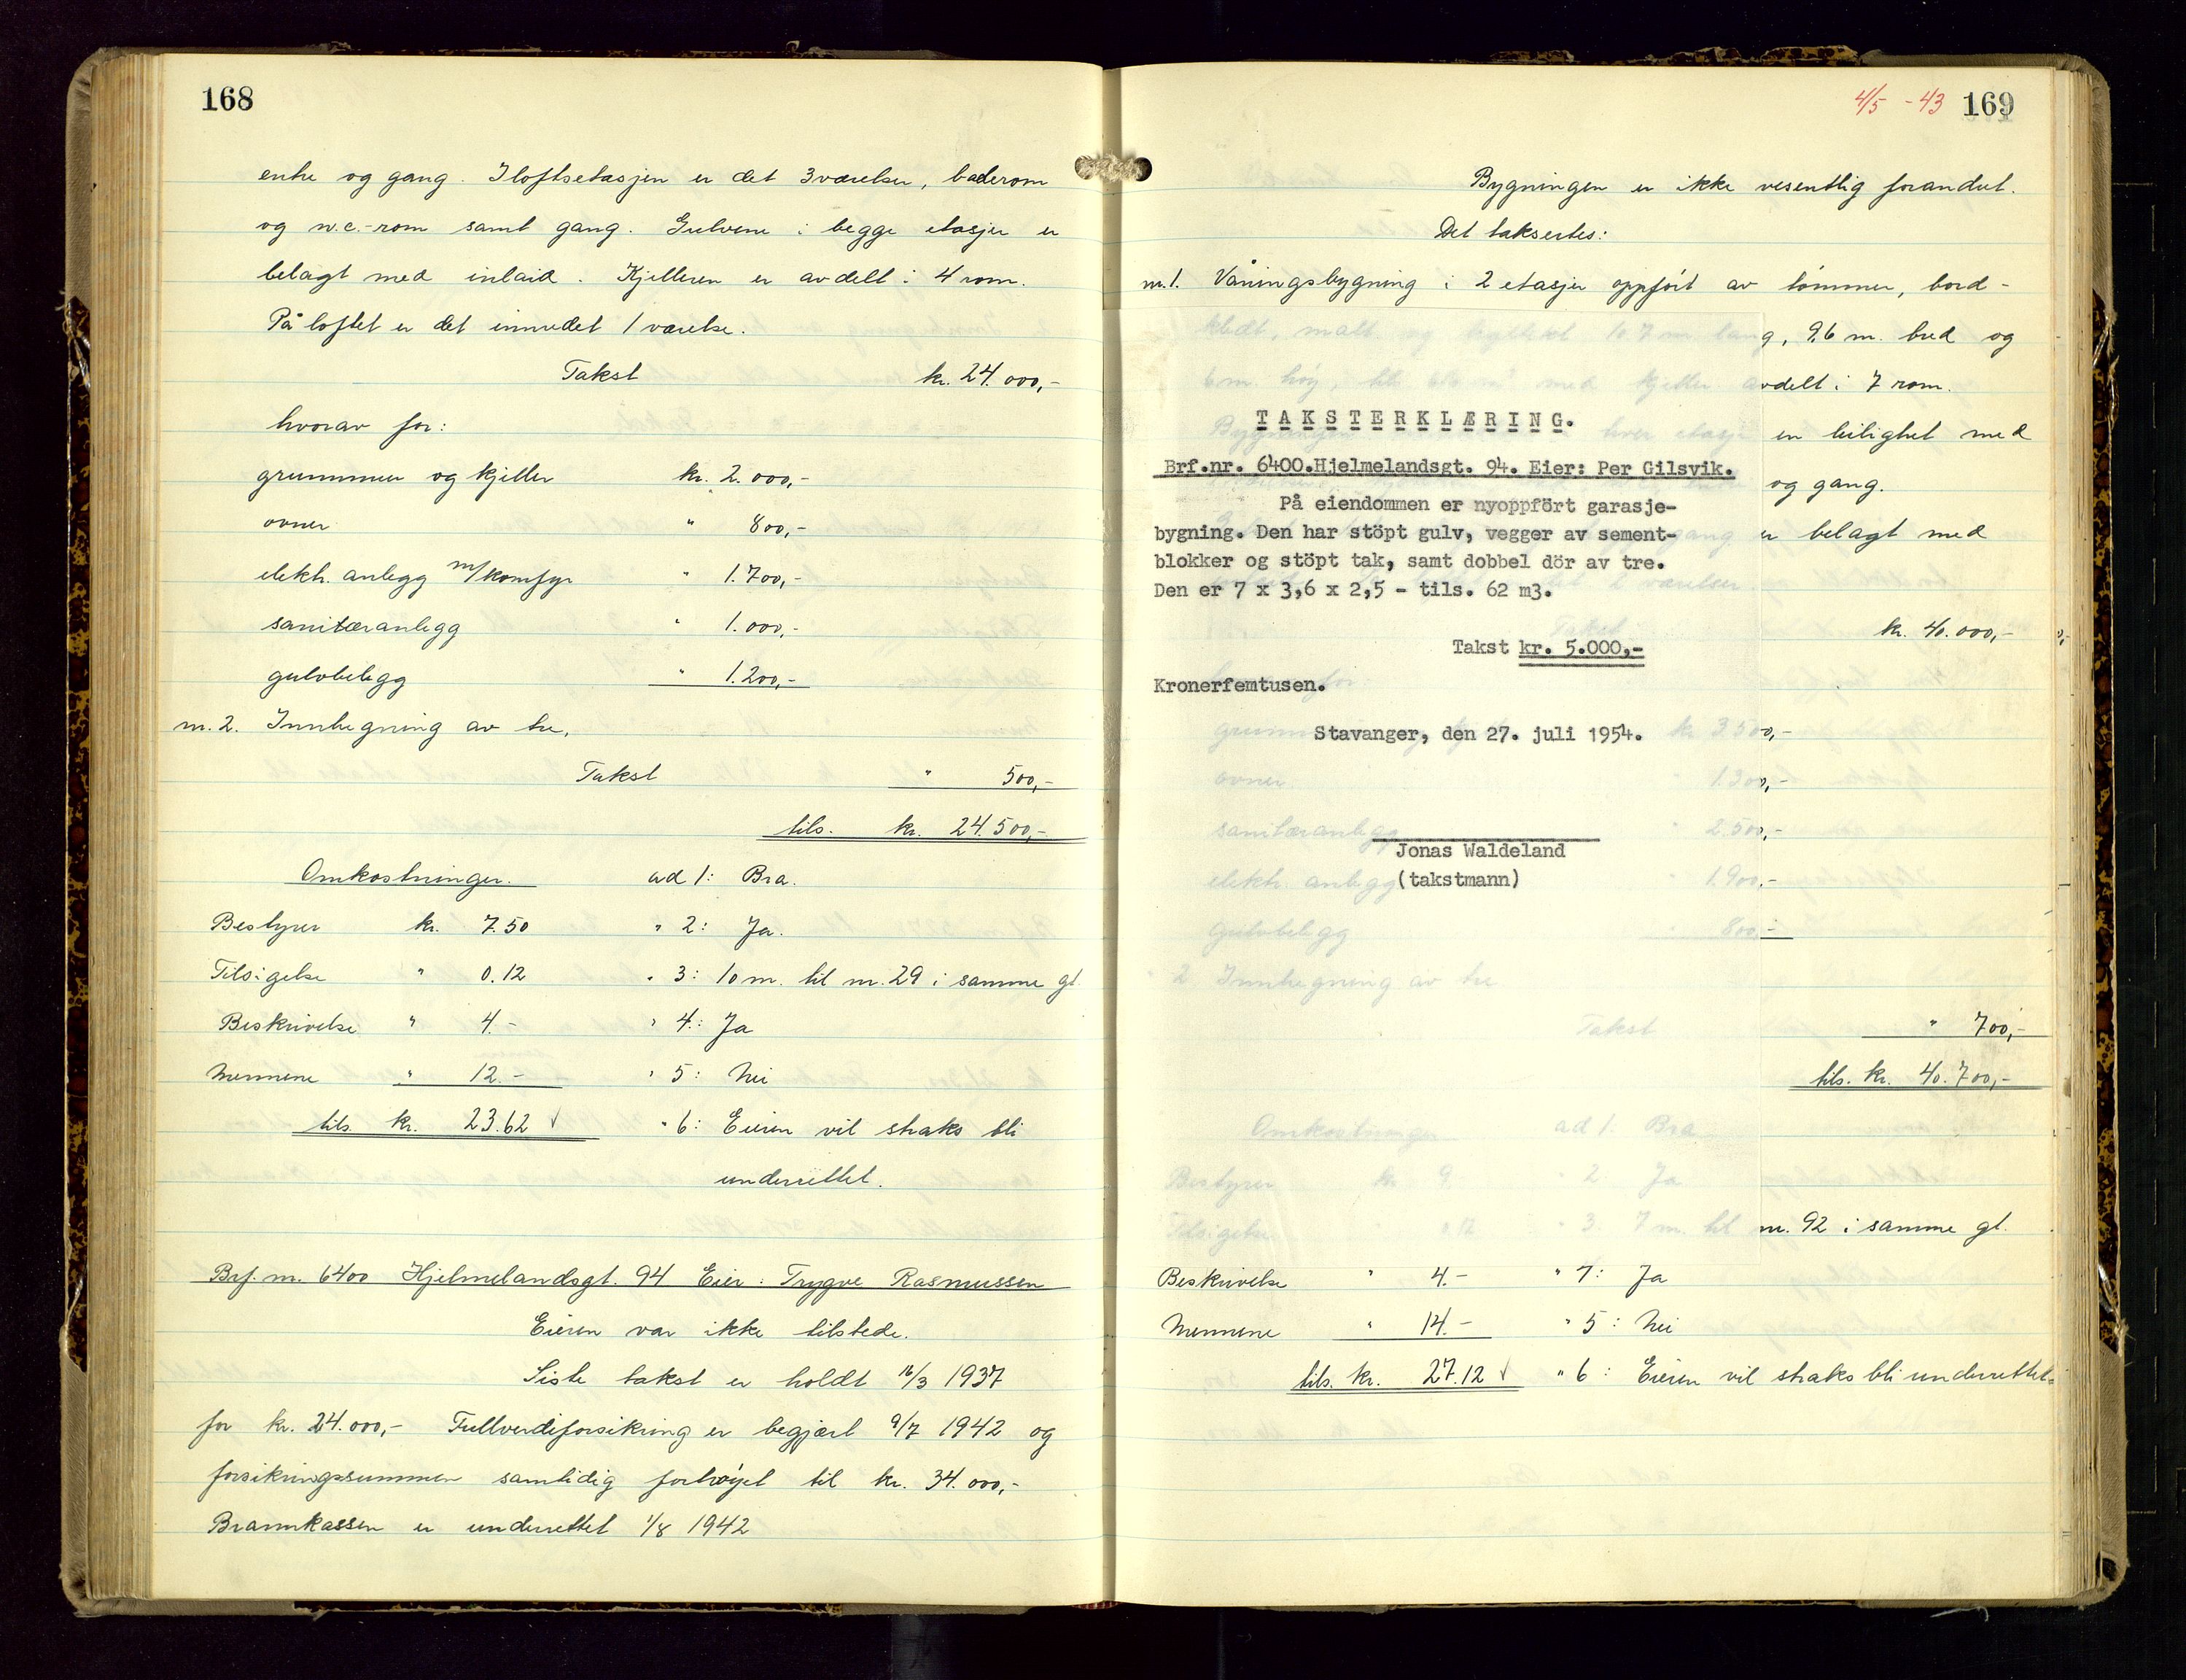 168
entre og gang. I loftsetasjen er det 3 værelser, baderom
og w.c.-rom samt gang. Gulvene i begge etasjer er
belagt med inlaid. Kjelleren er avdelt i 4 rom.
På loftet er det innredet 1 værelse.
Takst kr. 24.000,-
hvorav for:
grunnmur og kjeller kr. 2.000,-
ovner " 800,-
elektr. anlegg m/komfyr " 1.700,-
sanitæranlegg " 1.000,-
gulvbelegg " 1.200,-
nr. 2. Innhegning av tre.
Takst " 500,-
tils. kr. 24.500,-
Omkostninger. ad 1: Bra.
Bestyrer kr. 7.50 " 2: Ja.
Tilsigelse " 0.12 " 3: 10 m. til nr. 29 i samme gt.
Beskrivelse " 4.- " 4: Ja
Mennene " 12.- " 5: Nei
tils. kr. 23.62 √ " 6: Eieren vil straks bli
underrettet.
Brf. nr. 6400 Hjelmelandsgt. 94 Eier: Trygve Rasmussen
Eieren var ikke tilstede.
Siste takst er holdt 16/3 1937
for kr. 24.000,- Fullverdiforsikring er begjært 9/7 1942 og
forsikringssummen samtidig forhøyet til kr. 34.000,-
Brannkassen er underrettet 1/8 1942
4/5 - 43 169
Bygningen er ikke vesentlig forandret.
Det taksertes:
nr. 1. Våningsbygning i 2 etasjer oppført av tømmer, bord-
kledt, malt og tegltekt 10.7 m lang, 9.6 m. bred og
6 m. høy, tils. m³ med kjeller avdelt i 7 rom.
Bygningen hver etasje en leilighet med
og gang.
gang er belagt med
2 værelser
Takst kr. 40.000,-
TAKSTERKLÆRING.
Brf.nr. 6400.Hjelmelandsgt. 94. Eier: Per Gilsvik.
På eiendommen er nyoppfört garasje-
bygning. Den har stöpt gulv, vegger av sement-
blokker og stöpt tak, samt dobbel dör av tre.
Den er 7 x 3,6 x 2,5 - tils. 62 m3.
Takst kr. 5.000,-
Kronerfemtusen.
Stavanger, den 27. juli 1954.
Jonas Waldeland
(takstmann)
kr. 3.500,-
ovner " 1.300,-
sanitæranlegg " 2.500,-
elektr. anlegg " 1.900,-
gulvbelegg " 800,-
" 2. Innhegning av tre
Takst " 700,-
tils. kr. 40.700,-
Omkostninger ad 1: Bra
Bestyrer kr. 9. " 2 Ja
Tilsigelse 0.12 " 3. 7 m. til nr. 92 i samme gt.
Beskrivelse " 4.- " 4: Ja
Mennene " 14.- " 5: Nei
tils. kr. 27.12 √ " 6: Eieren vil straks bli underrettet.